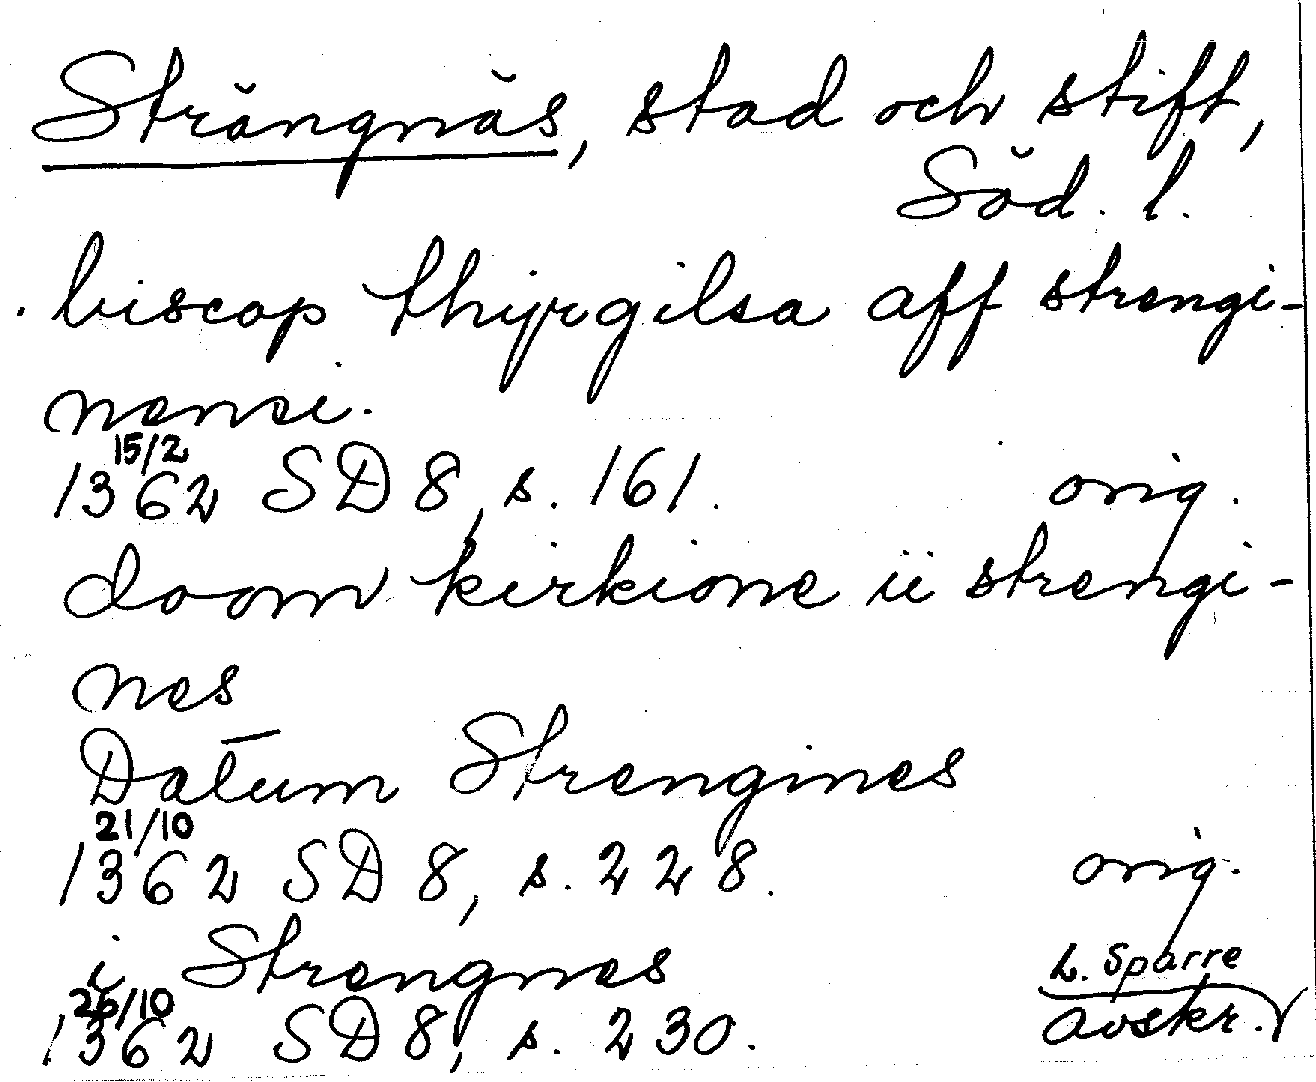 Strängnäs, stad och stift,
Söd. l.
biscop thyrgilsa aff strengi-
nensi.
15/2
1362 SD 8, s. 161. orig.
doom kirkione ii strengi-
nes
Datum Strengines
21/10
1362 SD 8, s. 228. orig.
i Strengnes L. Sparre
26/10
1362 SD 8, s. 230. avskr.